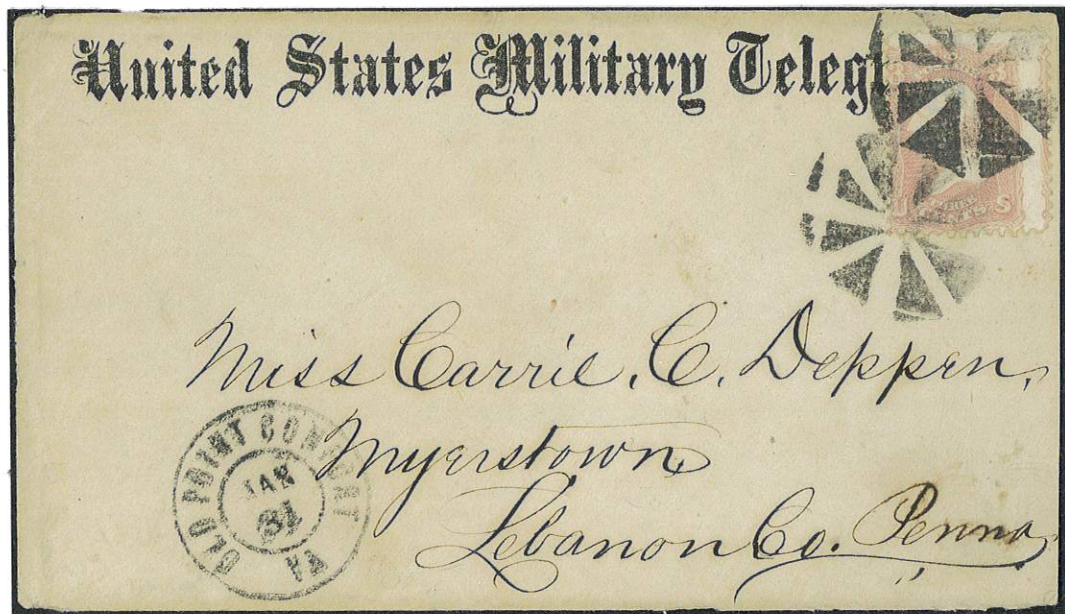 United States Military Telegr
Miss Carrie. C. Deppen,
Myerstown
Lebanon Co. Penna,
OLD POINT COMFORT
JAN
31
VA
3
U THREE CENTS S